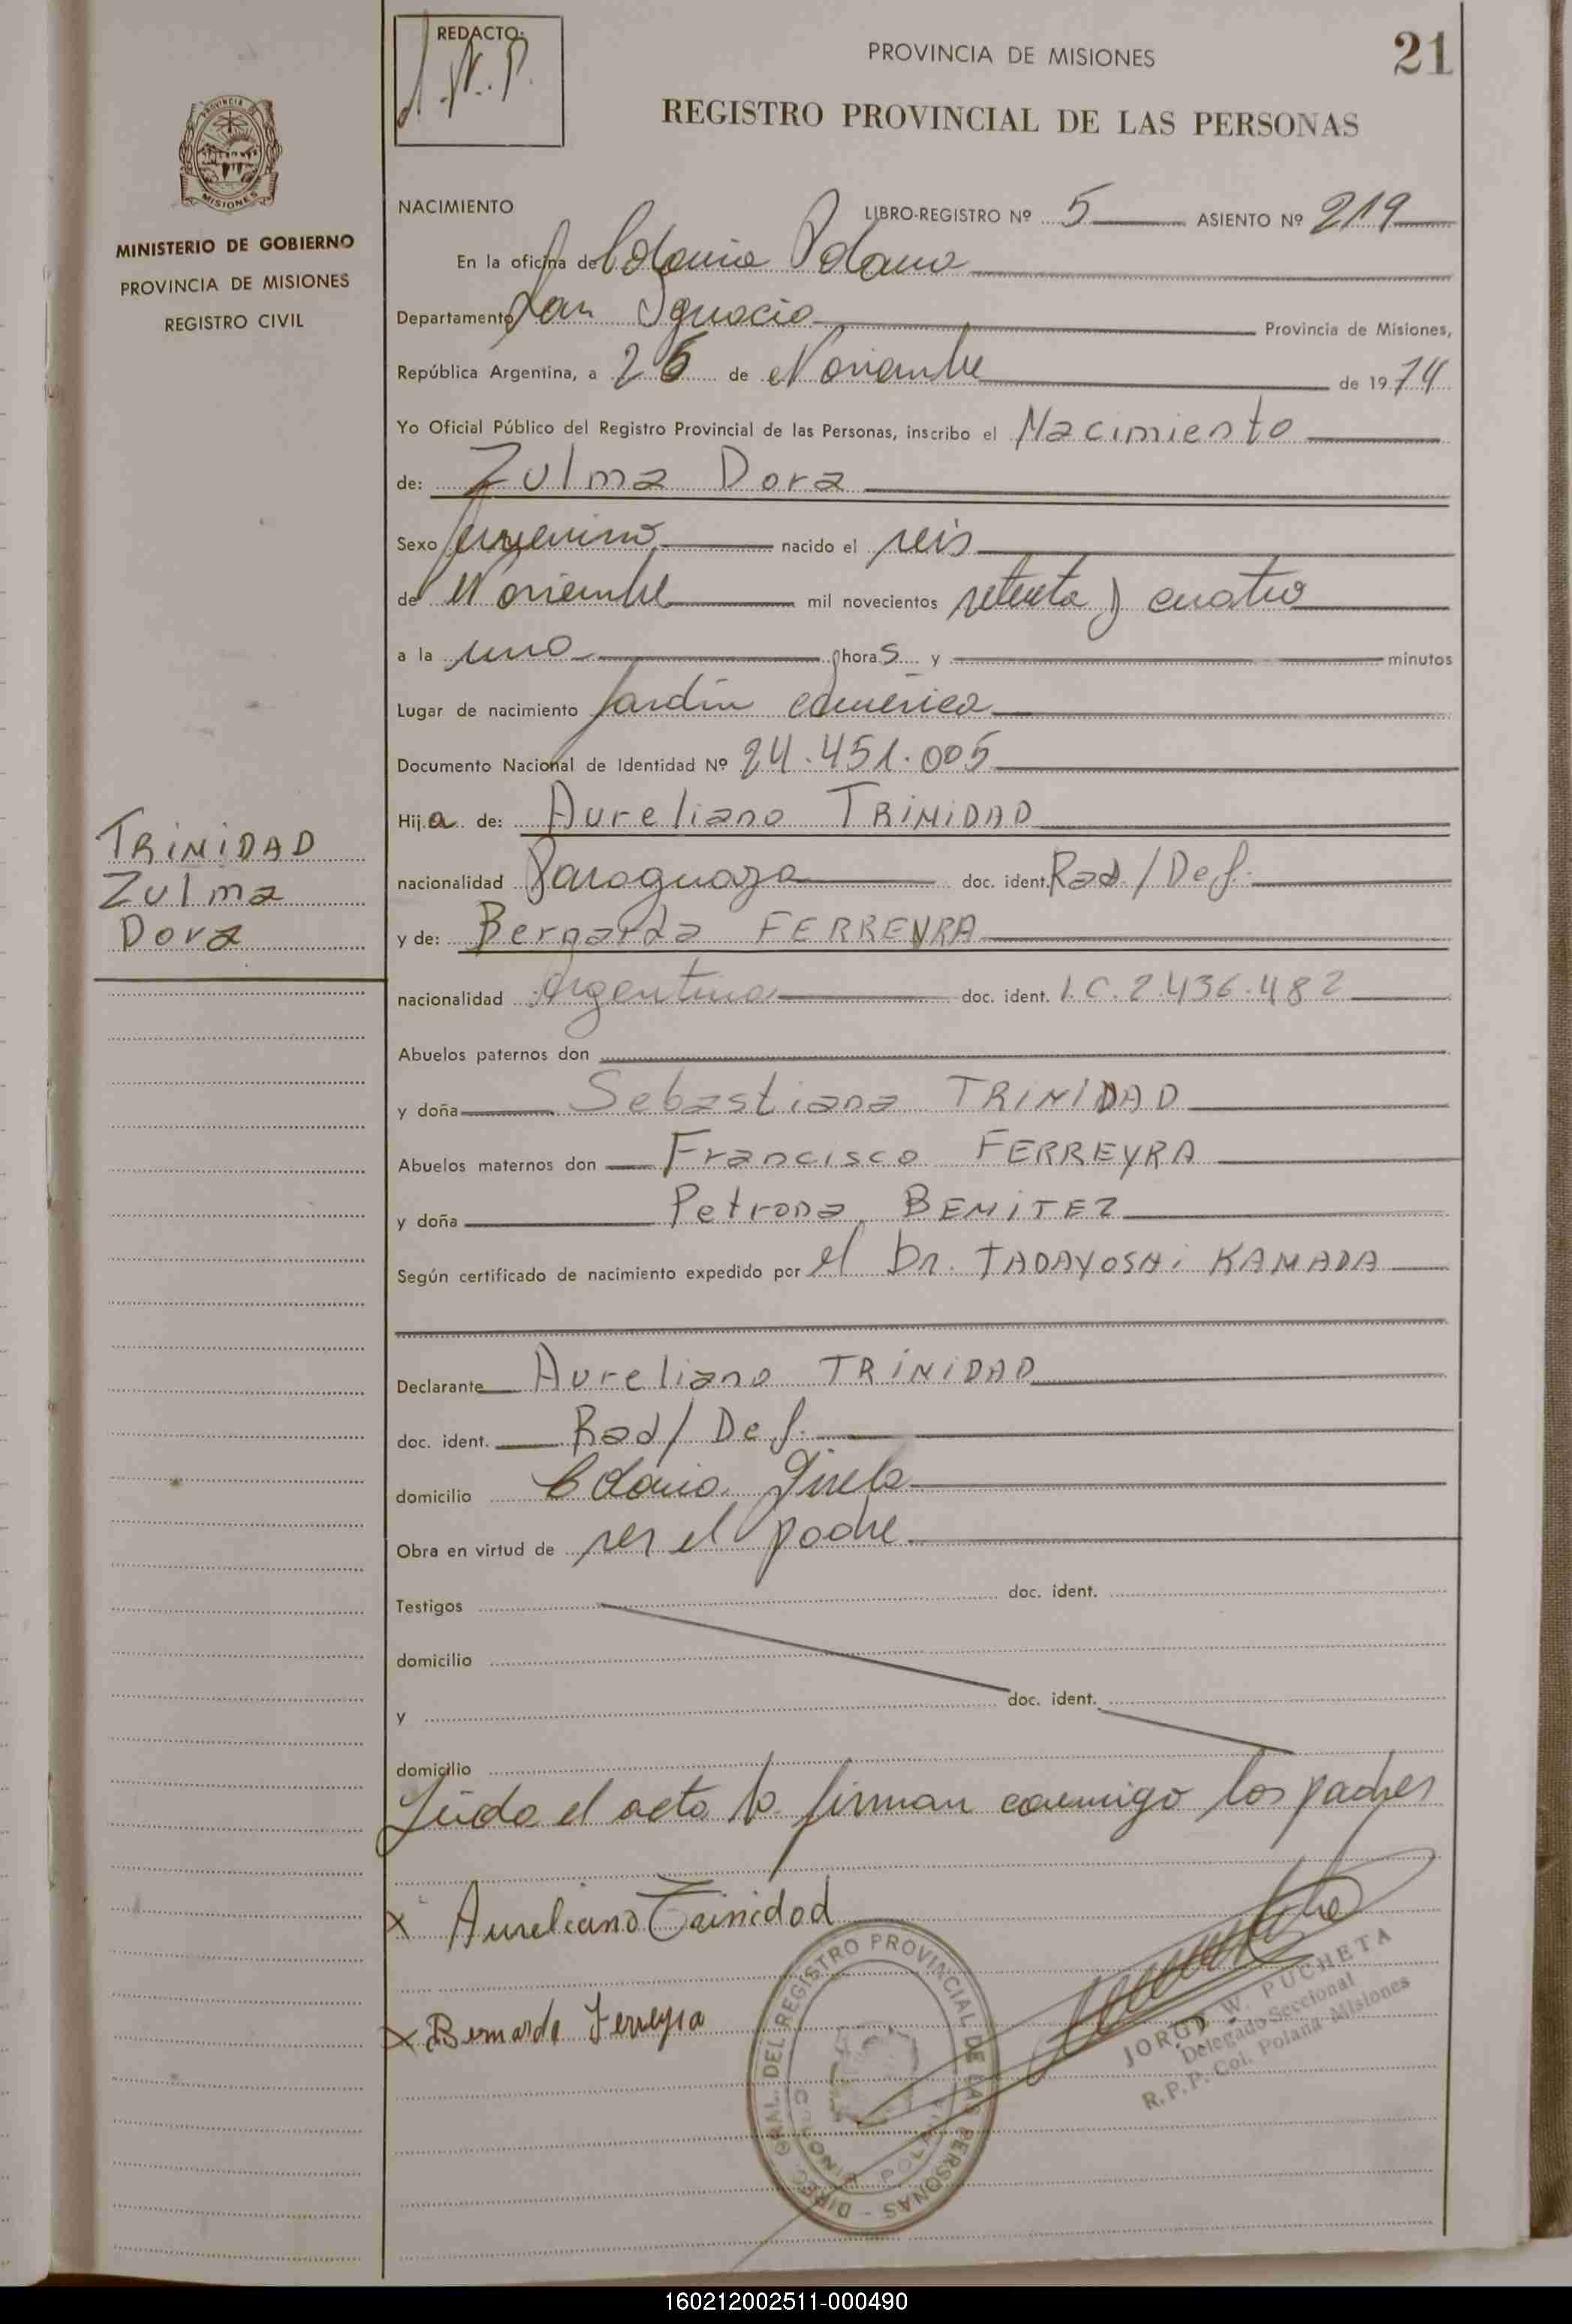 REDACTO:
PROVINCIA DE MISIONES
21
REGISTRO PROVINCIAL DE LAS PERSONAS
MISIONES
MINISTERIO DE GOBIERNO
PROVINCIA DE MISIONES
REGISTRO CIVIL
TRINIDAD
Zulma
Dora
NACIMIENTO LIBRO-REGISTRO Nº 5 ASIENTO Nº 219
En la oficina de Colonia Polana
Departamento San Ignacio Provincia de Misiones,
República Argentina, a 25 de Noviembre de 1974
Yo Oficial Público del Registro Provincial de las Personas, inscribo el Nacimiento
de: Zulma Dora
Sexo femenino nacido el seis
de Noviembre mil novecientos setenta y cuatro
a la una horas y minutos
Lugar de nacimiento Jardín América
Documento Nacional de Identidad Nº 24.451.005
Hija de: Aureliano TRINIDAD
nacionalidad Paraguaya doc. ident. Rad/Def.
y de: Bernarda FERREYRA
nacionalidad Argentina doc. ident. l.C. 2.436.482
Abuelos paternos don
y doña Sebastiana TRINIDAD
Abuelos maternos don Francisco FERREYRA
y doña Petrona BENITEZ
Según certificado de nacimiento expedido por el Dr. TADAYOSHi KAMADA
Declarante Aureliano TRINIDAD
doc. ident. Rad/Def.
domicilio Colonia Gisela
Obra en virtud de ser el padre
Testigos doc. ident.
domicilio
y doc. ident.
domicilio
Leida el acta la firman conmigo los padres
x Aureliano Trinidad
x Bernarda Ferreyra
DIREC. GRAL. DEL REGISTRO PROVINCIAL DE LAS PERSONAS
JORGE W. PUCHETA
Delegado Seccional
R.P.P. Col. Polana Misiones
160212002511-000490